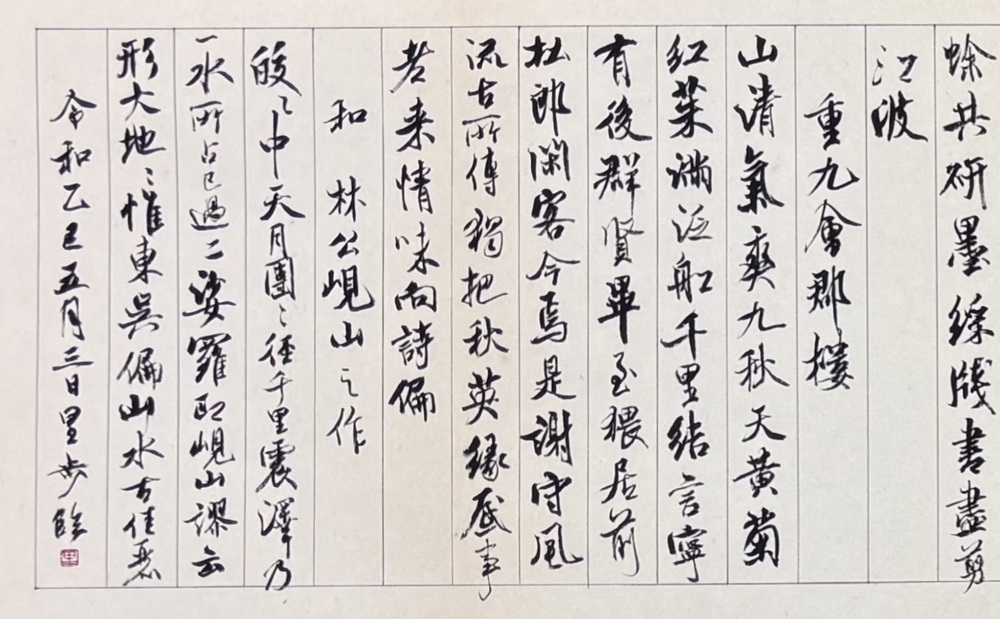 蜍共研墨綵牋書盡剪
江波
重九會郡樓
山清氣爽九秋天黃菊
紅茱滿泛船千里結言寧
有後群賢畢至猥居前
杜郎閑客今焉是謝守風
流古所傳獨把秋英緣底事
老来情味向詩偏
和林公峴山之作
皎〻中天月團〻徑千里震澤乃
一水所占已過二娑羅即峴山謬云
形大地〻惟東吳偏山水古佳麗
令和乙巳五月三日里歩臨